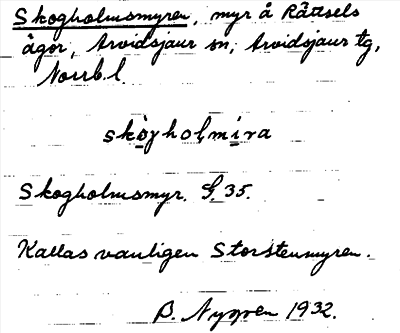 Skogholmsmyren, myr å Rättsels
ägor, Arvidsjaur sn, Arvidsjaur tg,
Norrb. l.
skògholmìra
Skogholmsmyr. G. 35.
Kallas vanligen Storstensmyren.
B. Nygren 1932.